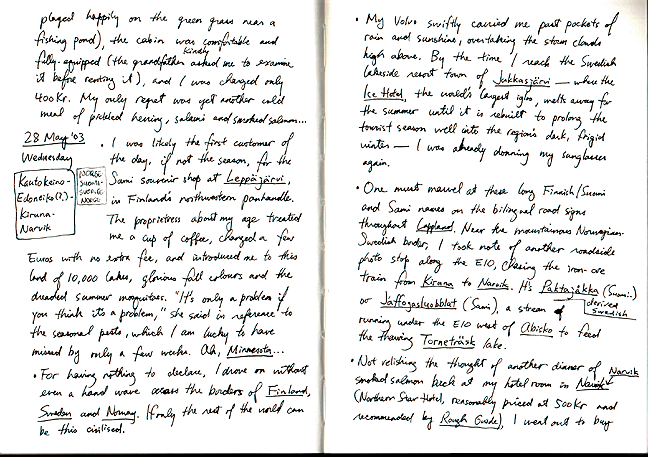 played happily on the green grass near a
fishing pond), the cabin was comfortable and
fully-equipped (the grandfather kindly asked me to examine
it before renting it), and I was charged only
400Kr. My only regret was yet another cold
meal of pickled herring, salami and smoked salmon...
28 May '03
Wednesday
Kautokeino-
Edoneiko(?)-
Kiruna-
Narvik
NORGE
SUOMI-
SVERIGE-
NORGE
• I was likely the first customer of
the day, if not the season, for the
Sami souvenir shop at Leppäjärvi,
in Finland's northwestern panhandle.
The proprietress about my age treated
me a cup of coffee, charged a few
Euros with no extra fee, and introduced me to this
land of 10,000 lakes, glorious fall colours and the
dreaded summer mosquitoes. "It's only a problem if
you think it's a problem," she said in reference to
the seasonal pests, which I am lucky to have
missed by only a few weeks. Ah, Minnesota...
• For having nothing to declare, I drove on without
even a hand wave across the borders of Finland,
Sweden and Norway. If only the rest of the world can
be this civilised.
• My Volvo swiftly carried me past pockets of
rain and sunshine, overtaking the storm clouds
high above. By the time I reach the Swedish
lakeside resort town of Jukkasjärvi — where the
Ice Hotel, the world's largest igloo, melts away for
the summer until it is rebuilt to prolong the
tourist season well into the region's dark, frigid
winter — I was already donning my sunglasses
again.
• One must marvel at these long Finnish/Suomi
and Sami names on the bilingual road signs
throughout Lappland. Near the mountainous Norwegian-
Swedish border, I took note of another roadside
photo stop along the E10, chasing the iron-ore
train from Kiruna to Narvik. It's Paktajåkka (Suomi-
derived
Swedish
or Jaffogasluobblat (Sami), a stream
running under the E10 west of Abisko to feed
the thawing Torneträsk lake.
• Not relishing the thought of another dinner of
smoked salmon back at my hotel room in Narvik
Narvik
(Northern Star Hotel, reasonably priced at 500Kr and
recommended by Rough Guide), I went out to buy